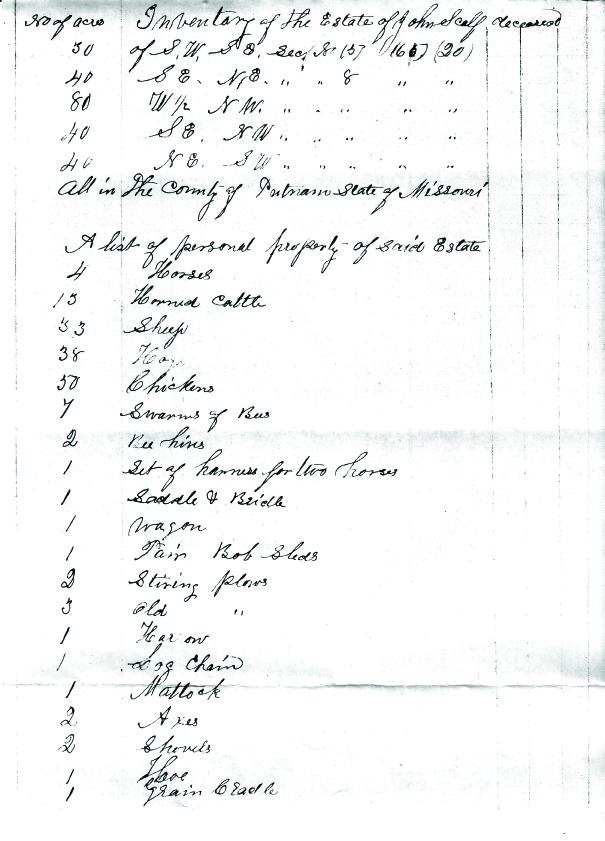 No of acres Inventary of the Estate of John Scalf deceased
30 of S.W. S E. Sec, No (5) (66) (20)
40 S E. N.E. " " 8 " "
80 W 1/2 N W. " " " " "
40 S E. N W. " " " " "
40 N E. S W " " " " "
All in The County of Putnam State of Missouri
A list of personal property of Said Estate
4 Horses
13 Horned cattle
33 Sheep
38 Hogs
50 Chickens
7 Swarms of Bees
2 Bee hives
1 Set of harness for two horses
1 Saddle & Bridle
1 Wagon
1 Pair Bob Sleds
2 Stiring plows
3 Old "
1 Harow
1 Log Chain
1 Mattock
2 Axes
2 Shovels
1 Hoe
1 Grain Cradle